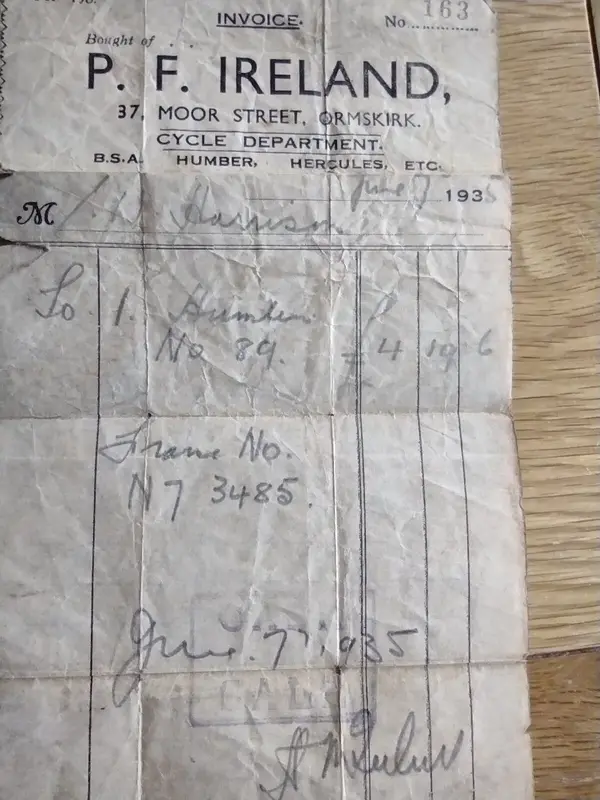 INVOICE.
No. 163
Bought of . .
P. F. IRELAND,
37, MOOR STREET, ORMSKIRK.
CYCLE DEPARTMENT.
B.S.A. HUMBER, HERCULES, ETC.
June 7 1935
M Harrison
To 1. Humber
No 89. £ 4 19 6
Frame No.
N7 3485.
June. 7th 1935